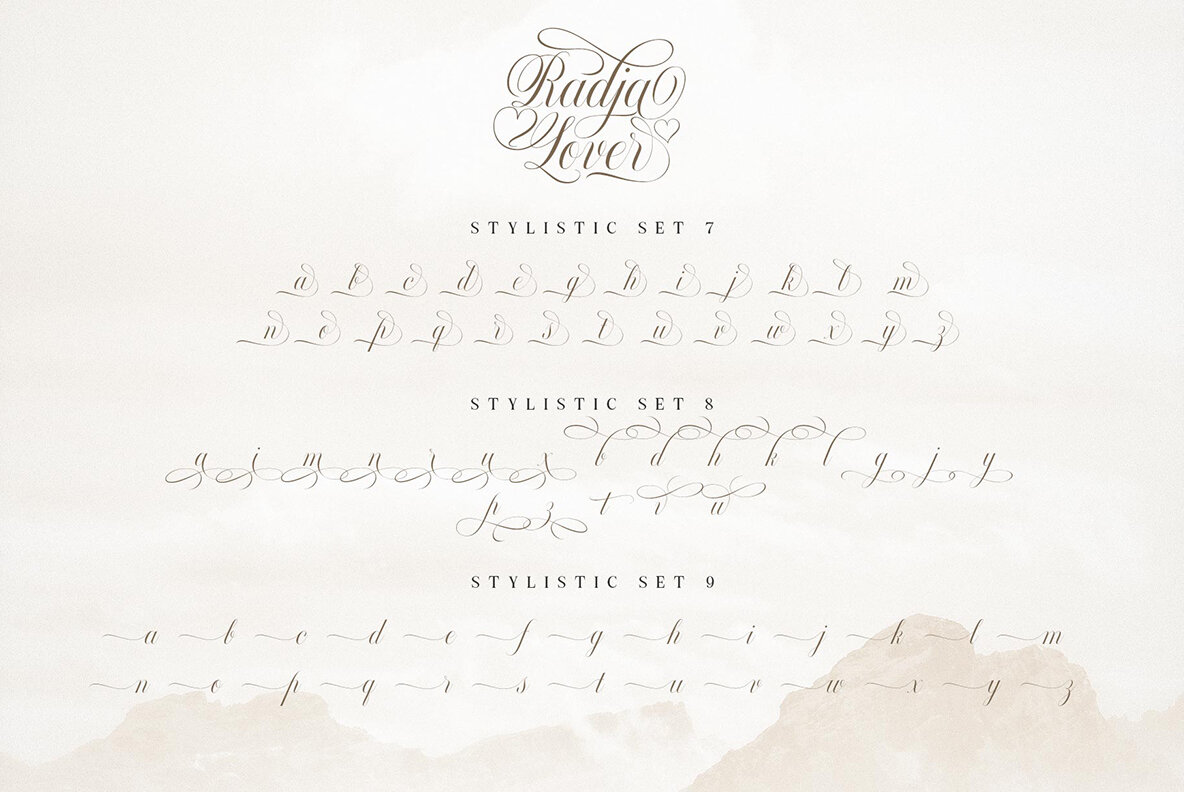 Radja
Lover
STYLISTIC SET 7
a b c d e g h i j k l m
n o p q r s t u v w x y z
STYLISTIC SET 8
a i m n r u x b d h k l g j y
p z t v w
STYLISTIC SET 9
a b c d e f g h i j k l m
n o p q r s t u v w x y z